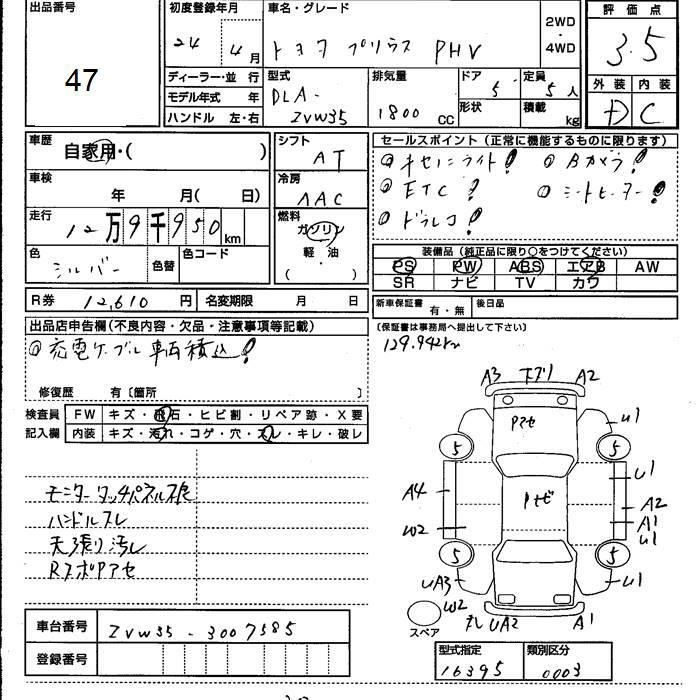 出品番号
47
初度登録年月
24 4月
車名・グレード
トヨタ プリウス PHV
2WD
・
4WD
評価点
3.5
外装 内装
D C
ディーラー・並行
モデル年式 年
ハンドル 左・右
型式
DLA-
ZVW35
排気量
1800 CC
ドア
5
定員
5人
形状
積載
kg
車歴
自家用・( )
車検
年 月( 日)
走行
12万9千950km
色
シルバー
色替
色コード
シフト
AT
冷房
AAC
燃料
ガソリン
軽・油
( ・ )
セールスポイント (正常に機能するものに限ります)
◎ ETC! ◎ シートヒーター!
◎ ドラレコ!
装備品 (純正品に限り○をつけてください)
PS PW ABS エアB AW
SR ナビ TV カワ
R券 12,610円 名変期限 月 日
新車保証書 有・無 後日品
(保証書は事務局へ提出して下さい)
129.942km
出品店申告欄(不良内容・欠品・注意事項等記載)
◎ 充電ケーブル車両積込!
修復歴 有〔箇所 〕
検査員 FW キズ・飛石・ヒビ割・リペア跡・X要
記入欄 内装 キズ・汚れ・コゲ・穴・スレ・キレ・破レ
ハンドルスレ
天張り汚レ
A3 A2
5 5
U1
U1
A4
A2
A1
U1
W2
5 5
UA3
U1
W2
UA2
A1
スペア
車台番号 ZVW35-3007585
登録番号
型式指定 類別区分
16395 0003